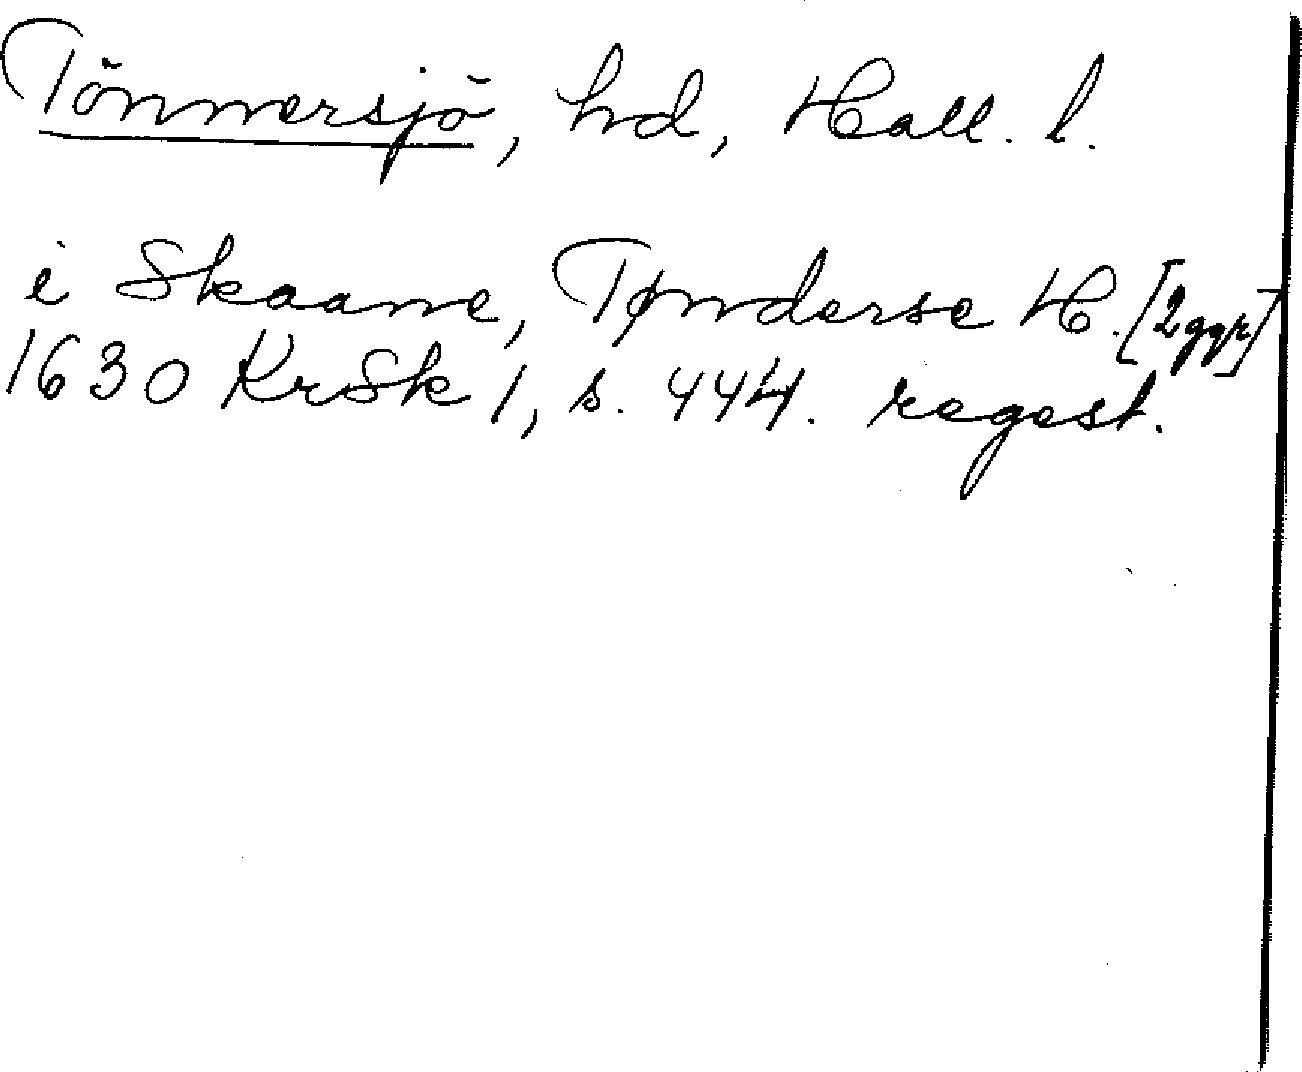 Tönnersjö, hd, Hall. l.
i Skaane, Tønderse H. [2 ggr]
1630 KrSk 1, s. 444. regest.